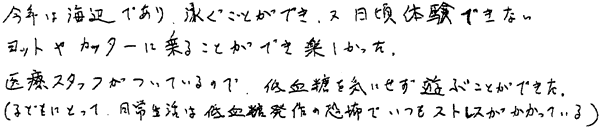 今年は海辺であり、泳ぐことができ、又日頃体験できない
ヨットやカッターに乗ることができ楽しかった。
医療スタッフがついているので、低血糖を気にせず遊ぶことができた。
(子どもにとって、日常生活は低血糖発作の恐怖でいつもストレスがかかっている)